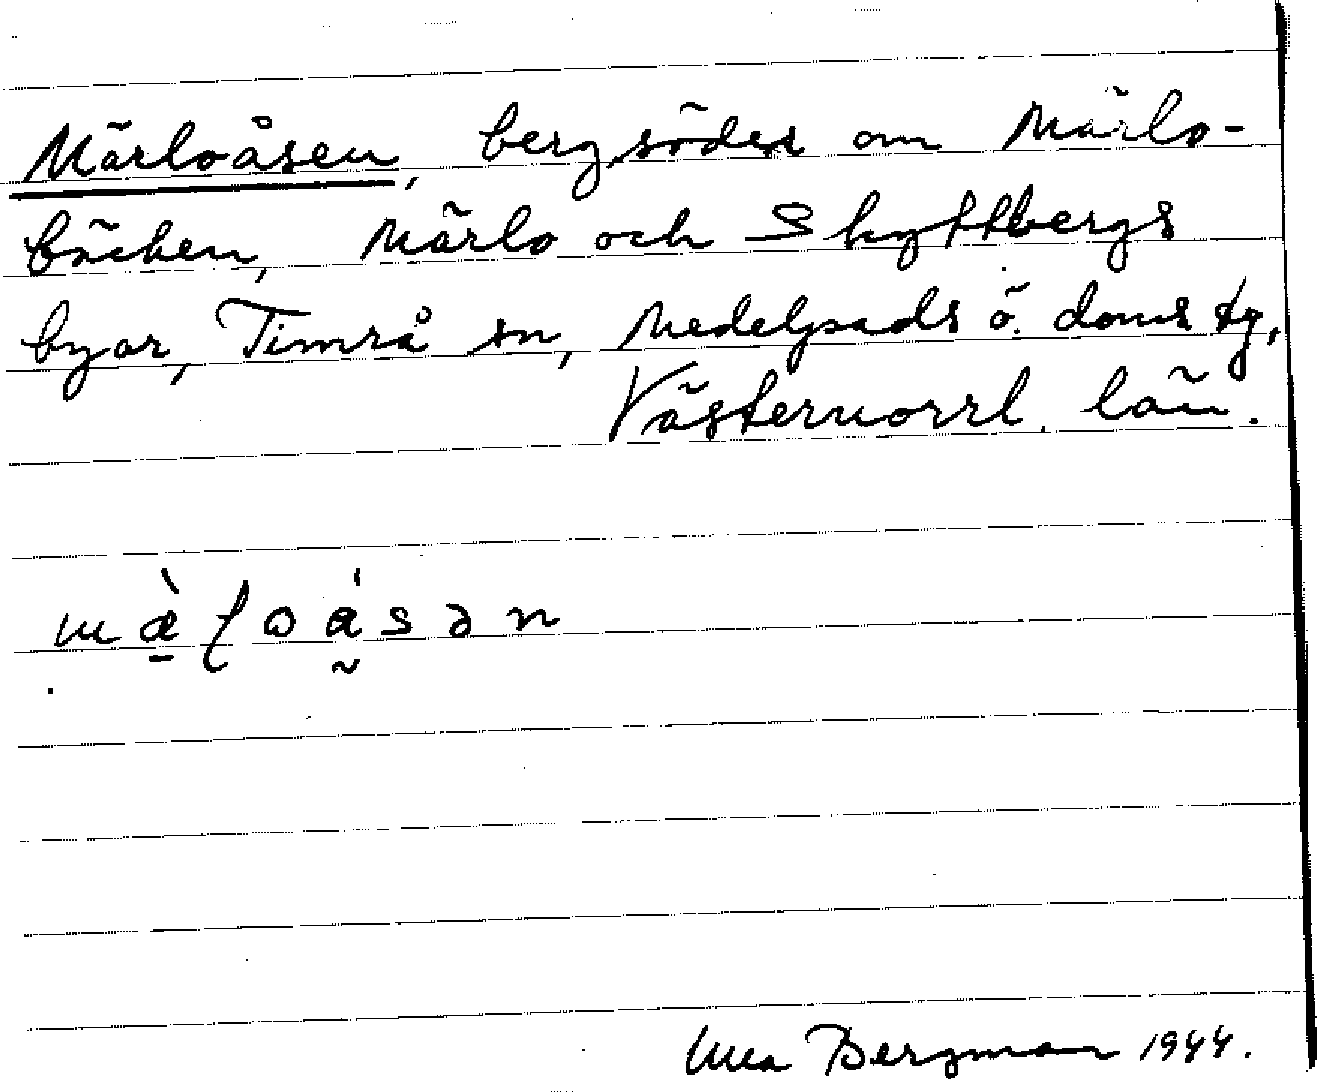 Märloåsen, berg söder om Märlo-
bäcken, Märlo och Skyttbergs
byar, Timrå sn, Medelpads ö. doms tg,
Västernorrl. län.
Bergman 1944.